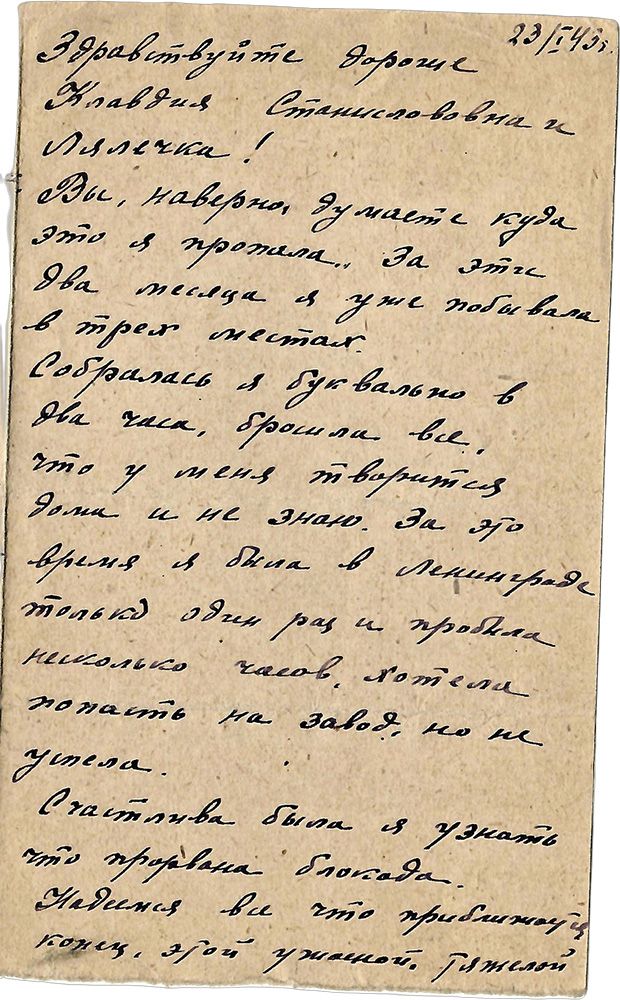 23/I 43г.
Здравствуйте дорогие
Клавдия Станиславовна и
Лялечка!
Вы, наверно, думаете куда
это я пропала. За эти
два месяца я уже побывала
в трех местах.
Собралась я буквально в
два часа, бросила все,
что у меня творится
дома и не знаю. За это
время я была в Ленинграде
только один раз и пробыла
несколько часов, хотела
попасть на завод, но не
успела.
Счастлива была я узнать
что прорвана блокада.
Надеемся все что приближается
конец, этой ужасной, тяжелой